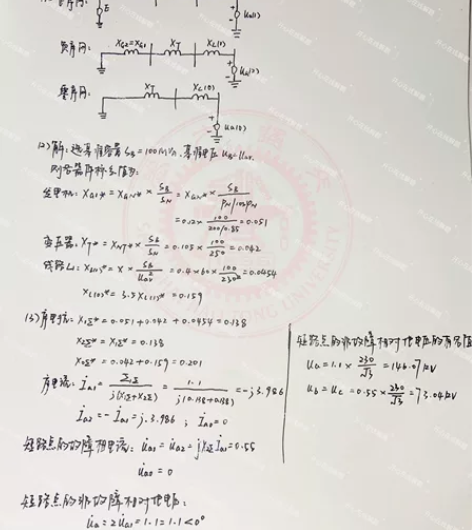 E
Ua(1)
负序网:
XG2=XG1
XT
XL(1)
Ua(2)
零序网:
XT
XL(0)
Ua(0)
(2)解: 选基准容量 SB=100MVA, 基准电压 UB=Uav.
则各器件标幺值为:
发电机: XG1* = XGN* × SB/SN = XGN* × SB/(PN/cosφN)
= 0.12 × 100/(200/0.85) = 0.051
变压器: XT* = XNT* × SB/SN = 0.105 × 100/250 = 0.042
线路L: XL(1)* = X × SB/Uav² = 0.4×60× 100/230² = 0.0454
XL(0)* = 3.5XL(1)* = 0.159
(3)序电抗: X1Σ* = 0.051+0.042+0.0454=0.138
X2Σ* = X1Σ* = 0.138
X0Σ* = 0.042+0.159=0.201
序电流: İa1 = /j(X1Σ+X2Σ) = 1.1/j(0.138+0.138) = -j3.986
İa2 = -İa1 = j3.986 ; İa0=0
短路点的故障相电流: U̇a1 = U̇a2 = jX2Σ İa1 = 0.55
U̇a0 = 0
短路点的非故障相对地电压:
U̇a = 2U̇a1 = 1.1 = 1.1<0°
短路点的非故障相对地电压的有名值
Ua = 1.1 × 230/√3 = 146.07kV
Ub = Uc = 0.55 × 230/√3 = 73.04kV